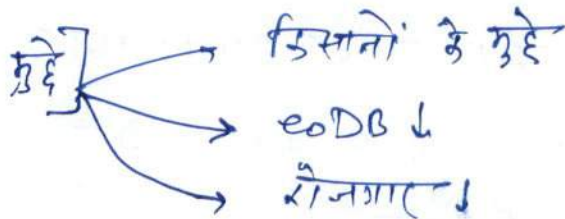 मुद्दे
किसानों के मुद्दे
eoDB ↓
रोजगार ↓